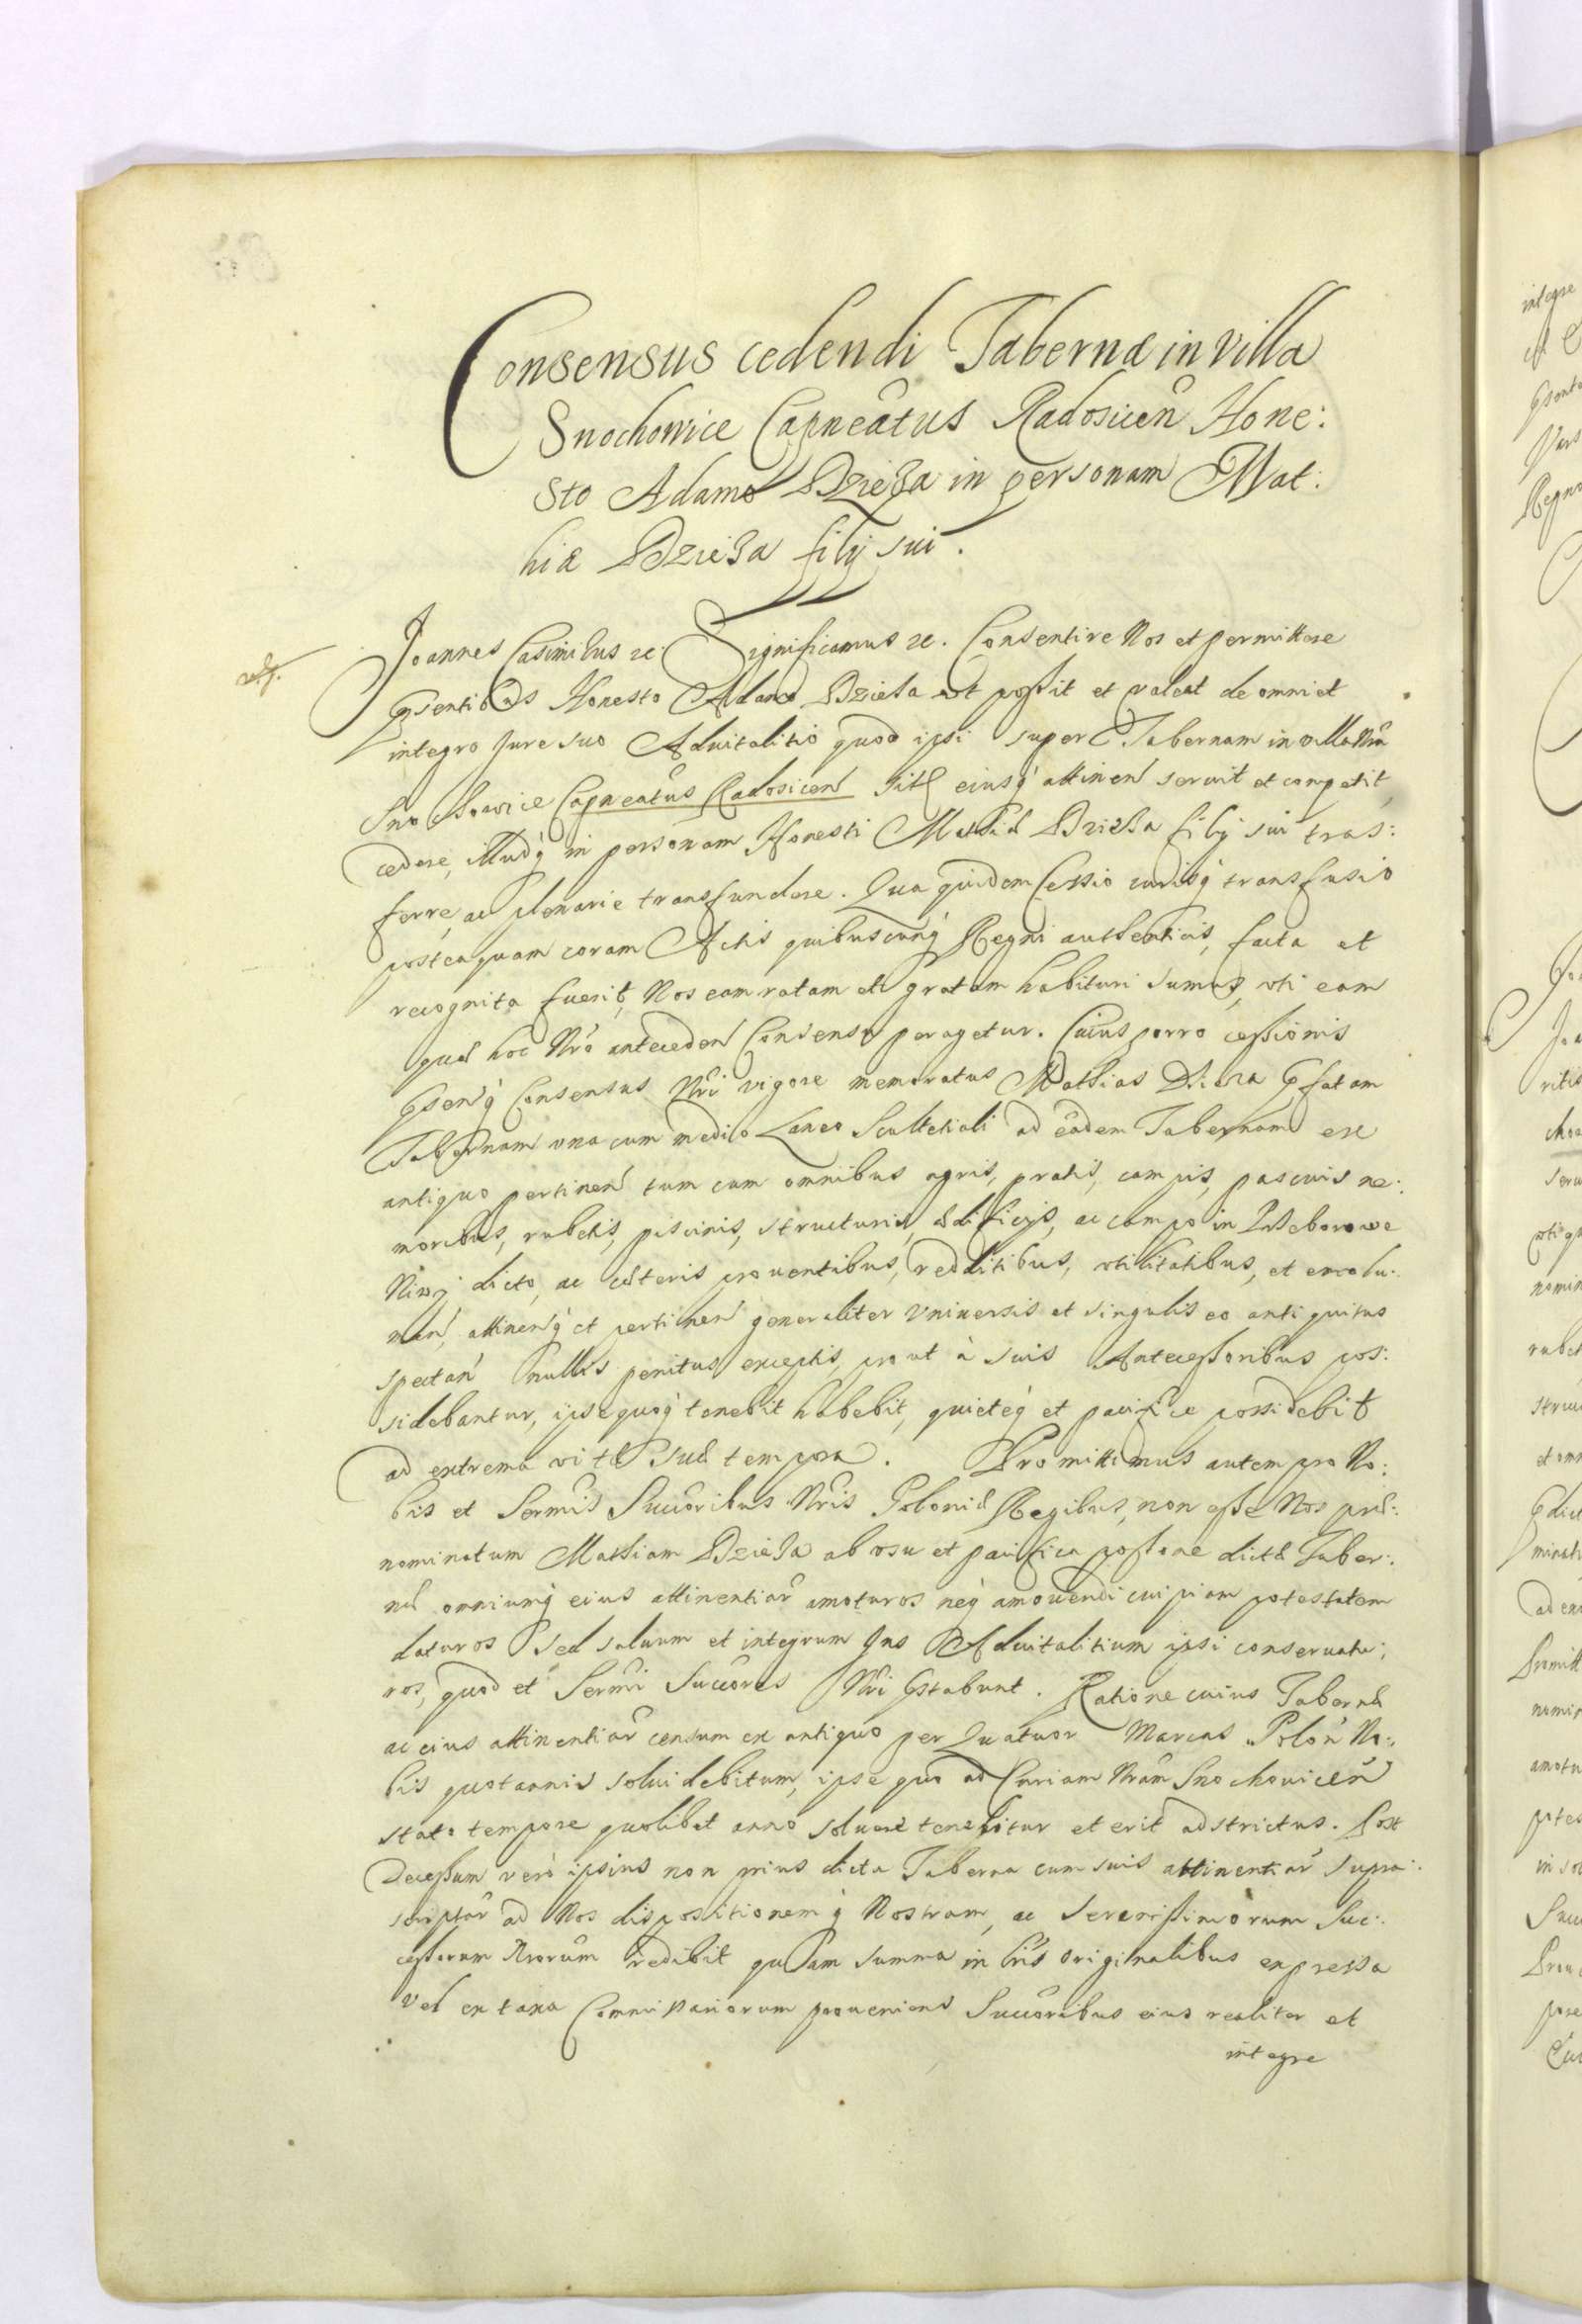 Consensus cedendi Tabernæ in villa
Snochowice Capneatus Radosicen Hone:
sto Adamo Dzieża in personam Mat:
hiæ Dzieża filij sui.
Joannes Casimirus etc. Significamus etc. Consentire Nos et permittere
pñsentibus Honesto Adamo Dzieża ut possit et valeat de omni et
integro Jure suo Advitalitio quod ipsi super Tabernam in villa Nrã
Snochowice Capneatus Radosicen sitæ eiusq́ attinen servit et competit,
cedere, illudq́ in personam Honesti Mathiæ Dzieża filij sui tras:
ferre, ac plenarie transfundere. Quæ quidem Cessio iurisq́ transfusio
posteaquam coram Actis quibuscunq́ Regni authenticis, facta et
recognita fuerit, Nos eam ratam et gratam habituri sumus, uti eam
quæ hoc Nrõ anteceden Consensu peragetur. Cuius porro cessionis
pñsenq́ Consensus Nri vigore memoratus Mathias Dzieża pfatam
Tabernam una cum medio Laneo Scultetiali ad eadem Tabernam ex
antiquo pertinen tum cum omnibus agris, pratis, campis, pascuis ne:
moribus, rubetis, piscinis, structuris, ædificijs, ac campo in
Niwy dicto, ac cæteris proventibus, redditibus, utilitatibus, et emolu:
men, attinenq́ et pertinen generaliter Universis et singulis eo antiquitus
spectan nullis penitus exceptis, prout à suis Antecessoribus pos:
sidebantur, ipse quoq́ tenebit habebit, quieteq́ et pacifice possidebit
ad extrema vitæ suæ tempora. Promittimus autem pro No:
bis et Sermis Succoribus Nris Poloniæ Regibus, non esse Nos præ:
nominatum Mathiam Dzieża ab usu et pacifica possone dictæ Taber:
næ omniumq́ eius attinentiar amoturos neq́ amovendi cuipiam potestatem
daturos sed salvum et integrum Jus Advitalitium ipsi conservatu:
ros, quod et Sermi Succores Nri pstabunt. Ratione cuius Tabernæ
ac eius attinentiar censum ex antiquo per Quatuor Marcas Polon No:
bis quotannis solui debitum, ipse quo ad Curiam Nram Snochovicen
stato tempore quolibet anno soluere tenebitur et erit adstrictus. Post
Decessum verò ipsius non prius dicta Taberna cum suis attinentiar supra:
scriptar ad Nos dispositionemq́ Nostram, ac Serenissimorum Suc:
cessorum Nrorum redibit quam summa in Lris Originalibus expressa
vel ex taxa Commissariorum proveniens Succoribus eius realiter et
integre